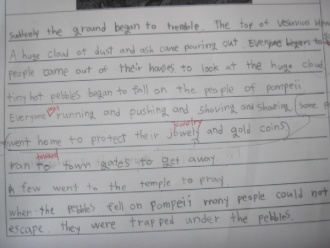 suddenly the ground began to tremble. The top of vesuvius
A huge cloud of dust and ash came pouring out. Everyone began to
people came out of their houses to look at the huge cloud
tiny hot pebbles began to fall on the people of pompeii
Everyone running and pushing and shoving and shoving some
went home to protect their jowely jewelry and gold coins
ran toward to town gates to get away
A few went to the temple to pray
when the pebbles fell on Pompeii many people could not
escape. they were trapped under the pebbles.